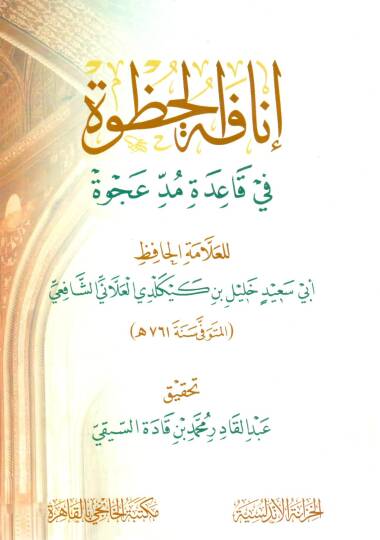 إنافة الحظوة
في قاعدة مُدّ عجوة
للعلامة الحافظ
أبي سعيد خليل بن كيكلدي العلائي الشافعي
(المتوفى سنة ٧٦١ هـ)
تحقيق
عبد القادر محمد بن قادة السيقي
الخزانة الأندلسية
مكتبة الخانجي بالقاهرة